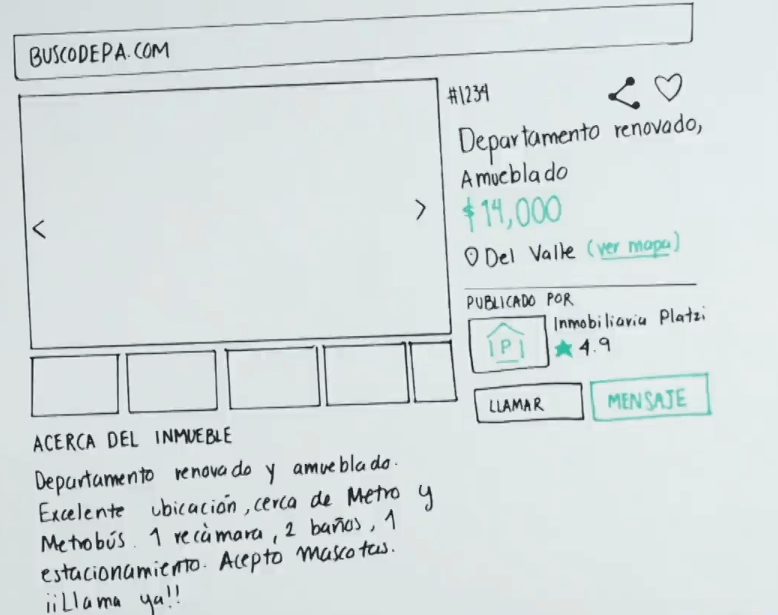 BUSCODEPA.COM
#1234
Departamento renovado,
Amueblado
$14,000
Del Valle (ver mapa)
PUBLICADO POR
Inmobiliaria Platzi
P
4.9
LLAMAR
MENSAJE
ACERCA DEL INMUEBLE
Departamento renovado y amueblado.
Excelente ubicación, cerca de Metro y
Metrobús. 1 recámara, 2 baños, 1
estacionamiento. Acepto mascotas.
¡¡Llama ya!!